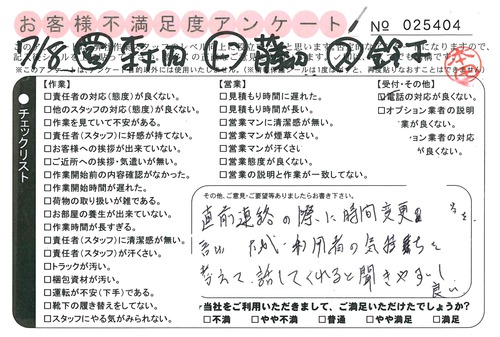 お客様不満足度アンケート
No 025404
7/8
チェックリスト
【作業】
□責任者の対応(態度)が良くない。
□他のスタッフの対応(態度)が良くない。
□作業を見ていて不安がある。
□責任者(スタッフ)に好感が持てない。
□お客様への挨拶が出来ていない。
□ご近所への挨拶・気遣いが無い。
□作業開始前の内容確認がなかった。
□作業開始時間が遅れた。
□荷物の取り扱いが雑である。
□お部屋の養生が出来ていない。
□作業時間が長すぎる。
□責任者(スタッフ)に清潔感が無い。
□責任者(スタッフ)が汗くさい。
□トラックが汚い。
□梱包資材が汚い。
□運転が不安(下手)である。
□靴下の履き替えをしてない。
□スタッフにやる気がみられない。
【営業】
□見積もり時間に遅れた。
□見積もり時間が長い。
□営業マンに清潔感が無い。
□営業マンが煙草くさい。
□営業マンが汗くさい
□営業態度が良くない。
□営業の説明と作業が一致してない。
【受付・その他】
□電話の対応が良くない。
□オプション業者の説明
業が良くない。
ョン業者の対応
が良くない。
その他、ご意見・ご要望等ありましたらお書き下さい。
直前連絡の際に時間変更
利用者の気持ちを
考えて、話してくれると聞きやすいし
良い
当社をご利用いただきまして、ご満足いただけたでしょうか?
□不満 □やや不満 □普通 □やや満足 □満足